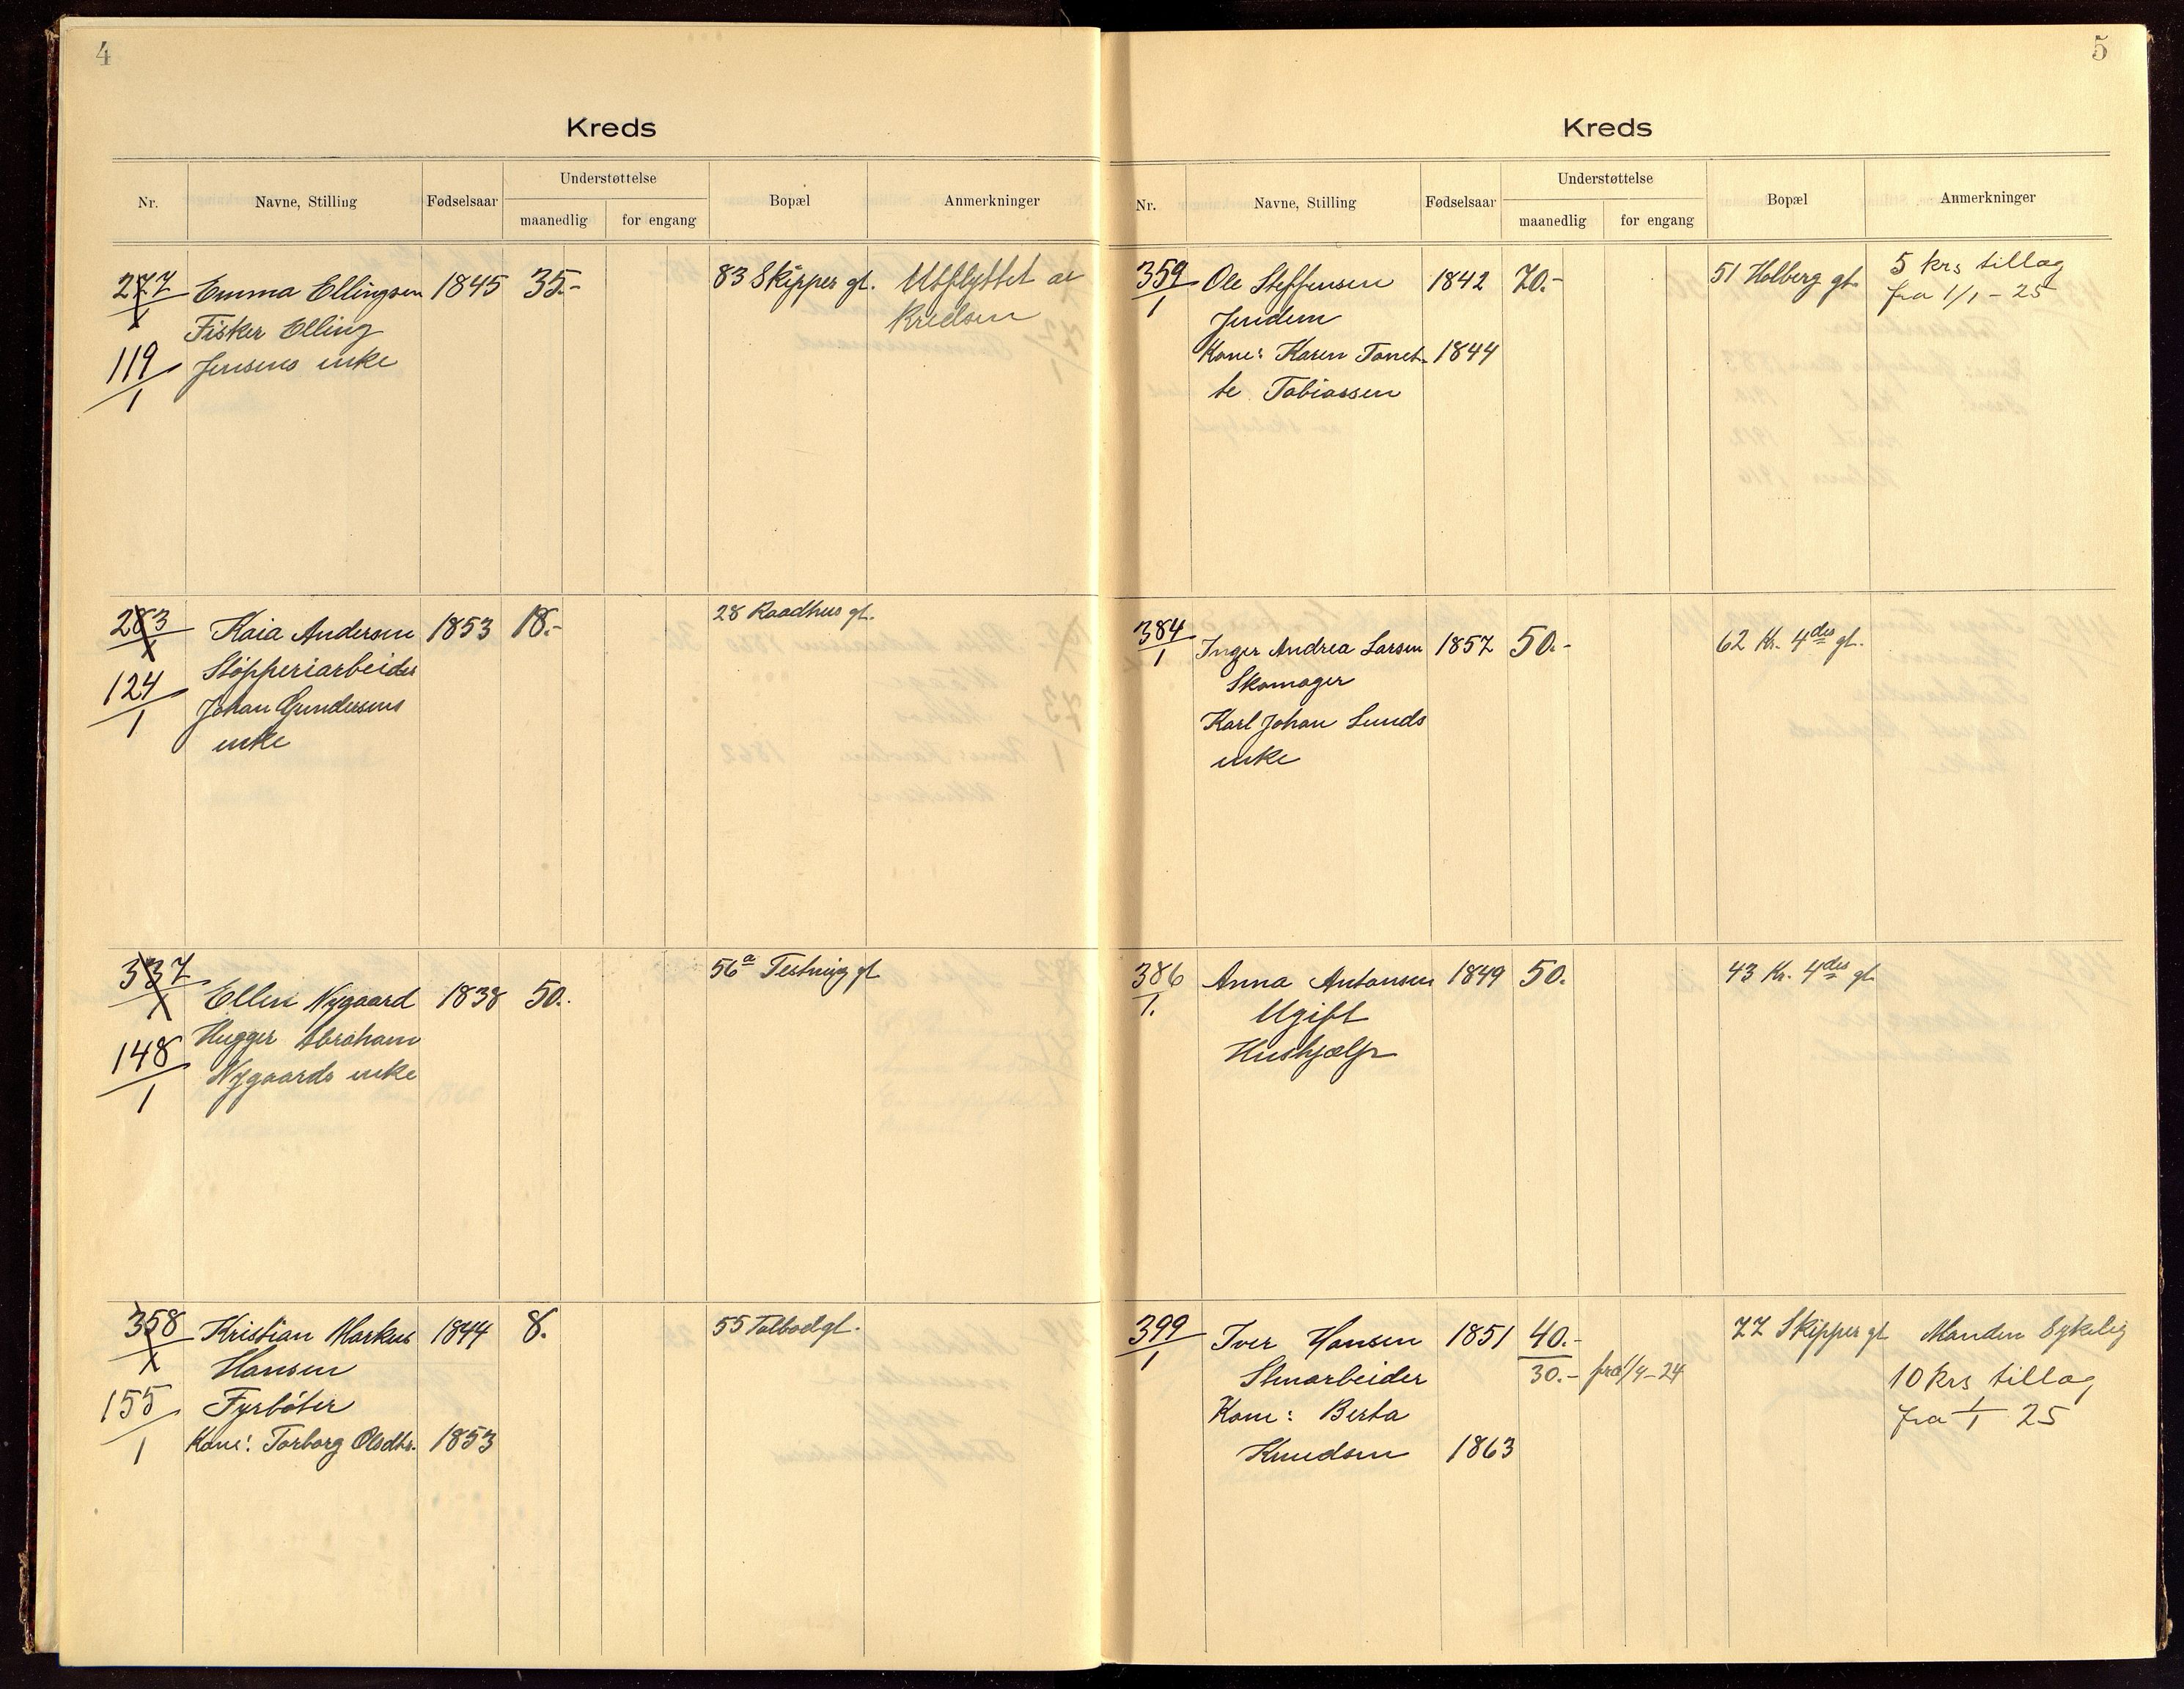 4
Kreds
Nr.
Navne, Stilling
Fødselsaar
Understøttelse
maanedlig
for engang
Bopæl
Anmerkninger
277/1 Emma Ellingsen 1845 35.- 83 Skipper gt. Utflyttet av
Fisker Elling Kredsen
119/1 Jensens enke
283/1 Kaia Andersen 1853 18.- 28 Raadhus gt.
Støpperiarbeider
124/1 Johan Gundersens
enke
337/1 Ellen Nygaard 1838 50.- 56a Festning gt
Hugger Abraham
148/1 Nygaards enke
358/1 Kristian Markus 1844 8. 55 Tolbodgt.
Hansen
155/1 Fyrbøter
Kone: Torborg Olsdtr. 1853
5
Kreds
Nr.
Navne, Stilling
Fødselsaar
Understøttelse
maanedlig
for engang
Bopæl
Anmerkninger
359/1 Ole Steffensen 1842 70.- 51 Holberg gt. 5 krs tillæg
Jendem fra 1/1-25
Kone: Karen Tonet- 1844
te Tobiassen
384/1 Inger Andrea Larsen 1857 50.- 62 Kr. 4des gt.
Skomager
Karl Johan Lunds
enke
386/1. Anna Antonsen 1849 50. 43 Kr. 4des gt.
Ugift
Hushjælp
399/1 Iver Hansen 1851 40.- 77 Skipper gt Manden sykelig
Stenarbeider 30.- fra 1/4-24 10 krs tillæg
Kone: Berta fra 1/1 25
Knudsen 1863